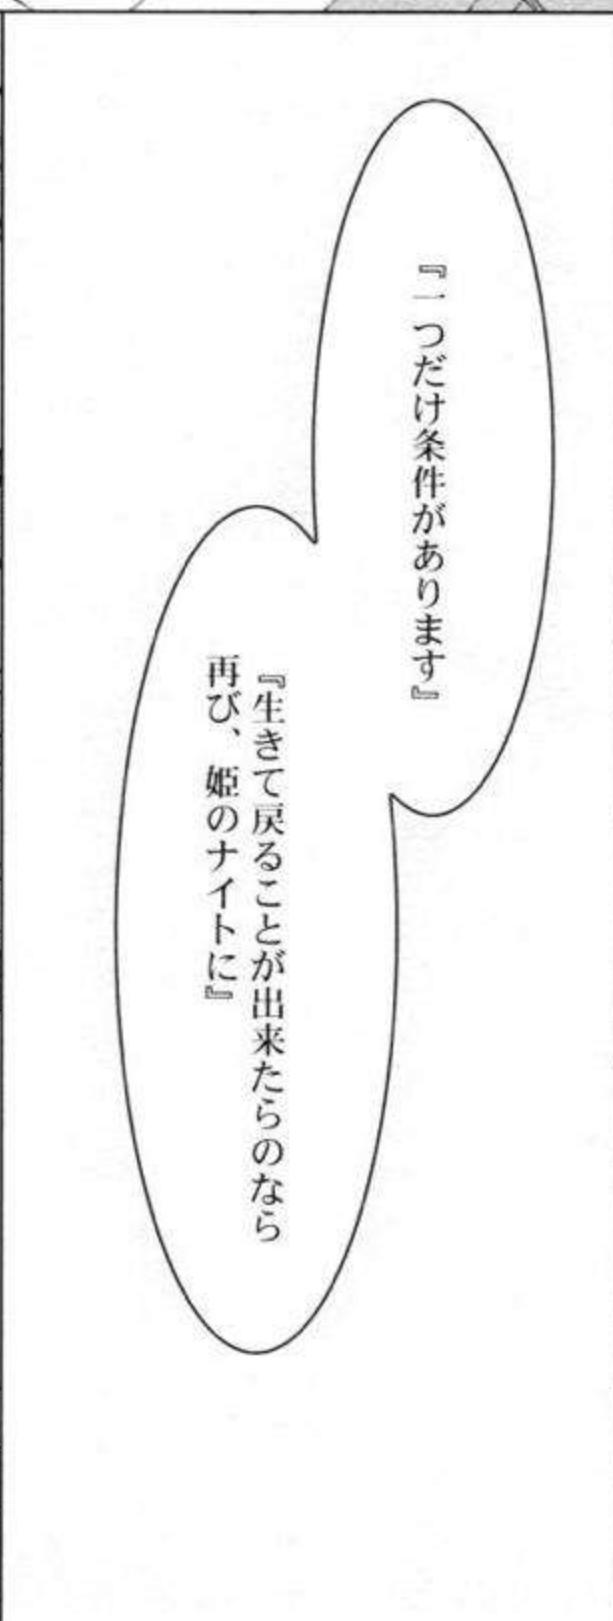 『一つだけ条件があります』
『生きて戻ることが出来たらのなら
再び、姫のナイトに』